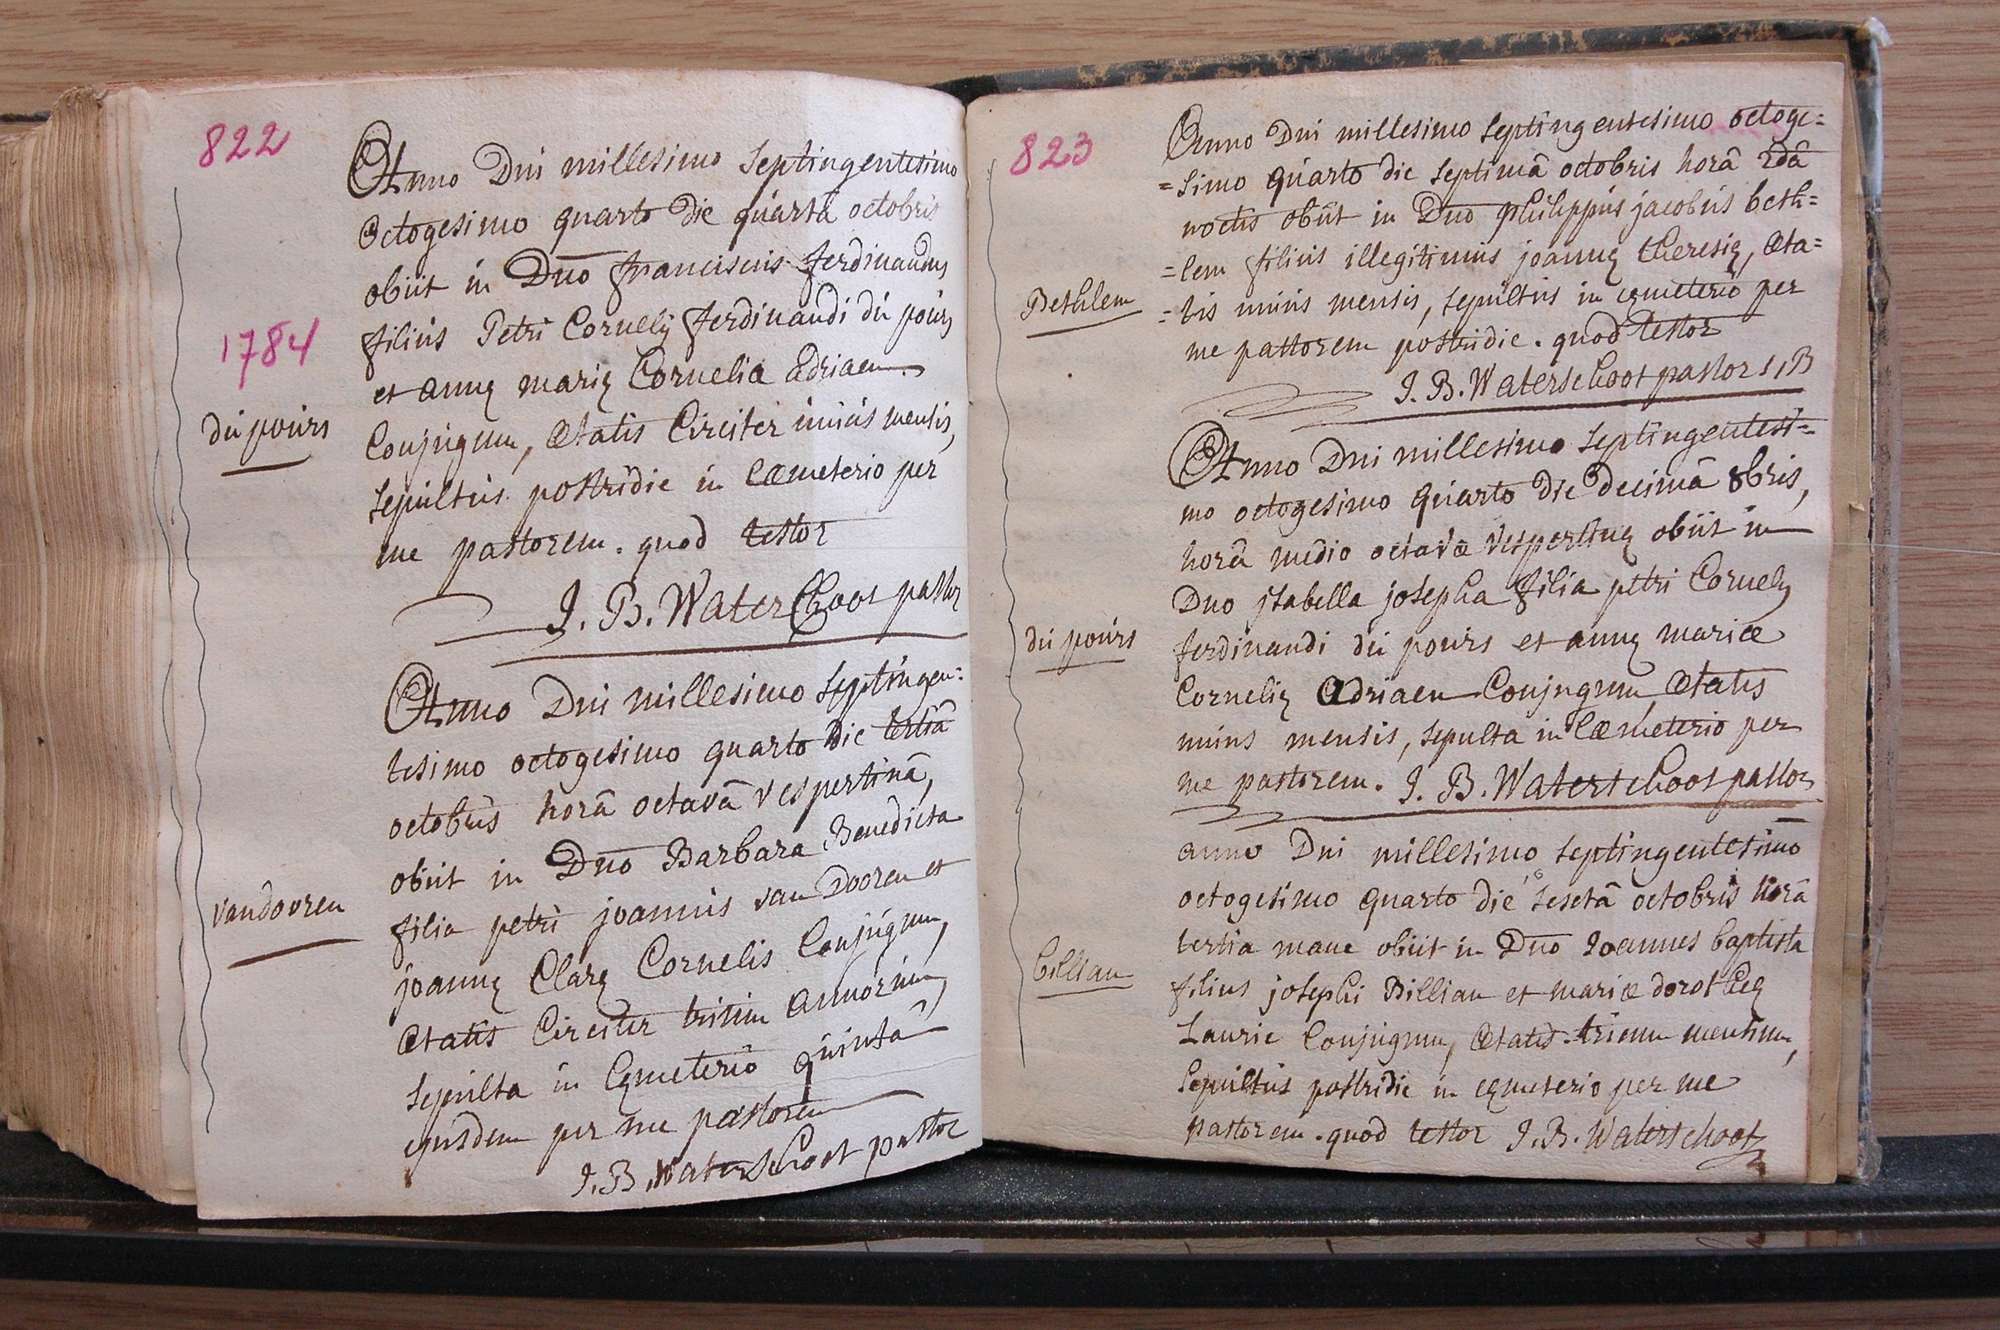 822
Anno Dni millesimo septingentesimo
octogesimo quarto die quartâ octobris
obiit in Dno franciscus ferdinandus
1784
filius Petri Cornelÿ ferdinandi dú pours
et annę marię Cornelia Adriaen
dú pours
Conjugum, ætatis Circiter unius mensis,
sepultus postridie in Cæmeterio per
me pastorem. quod testor
J. B. WaterSchoot pastor
Anno Dni millesimo septingen=
tesimo octogesimo quarto die tertiâ
octobris horâ octavâ vespertinâ,
obiit in Dno Barbara Benedicta
vandooren
filia petri joannis van Dooren et
joannę Clarę Cornelis Conjugum,
ætatis Circiter trium annorum,
sepulta in Cęmeterio quintâ
ejusdem per me pastorem
J. B. WaterSchoot pastor
823
Anno Dni millesimo septingentesimo octoge=
=simo quarto die septimâ octobris horâ 2dâ
noctis obiit in Dno philippus jacobus beth=
=lem filius illegitimus joannę theresię, æta=
Bethlem
=tis unius mensis, sepultus in cęmeterio per
me pastorem postridie. quod testor
J. B. Waterschoot pastor S, B
Anno Dni millesimo septingentesi=
mo octogesimo quarto die decimâ 8bris,
horâ medio octavæ vespertinę obiit in
Dno jsabella josepha filia petri Cornelÿ
dú pours
ferdinandi dú pours et annę mariæ
Cornelię Adriaen Conjugum ætatis
unius mensis, sepulta in Cæmeterio per
me pastorem. J. B. Waterschoot pastor
anno Dni millesimo septingentesimo
octogesimo quarto die sesctâ octobris horâ
tertia mane obiit in Dno Joannes baptista
billiau
filius josephi Billiau et mariæ dorotheę
Laurie Conjugum, ætatis trium mensium,
sepultus postridie in cęmeterio per me
pastorem. quod testor J. B. Waterschoot